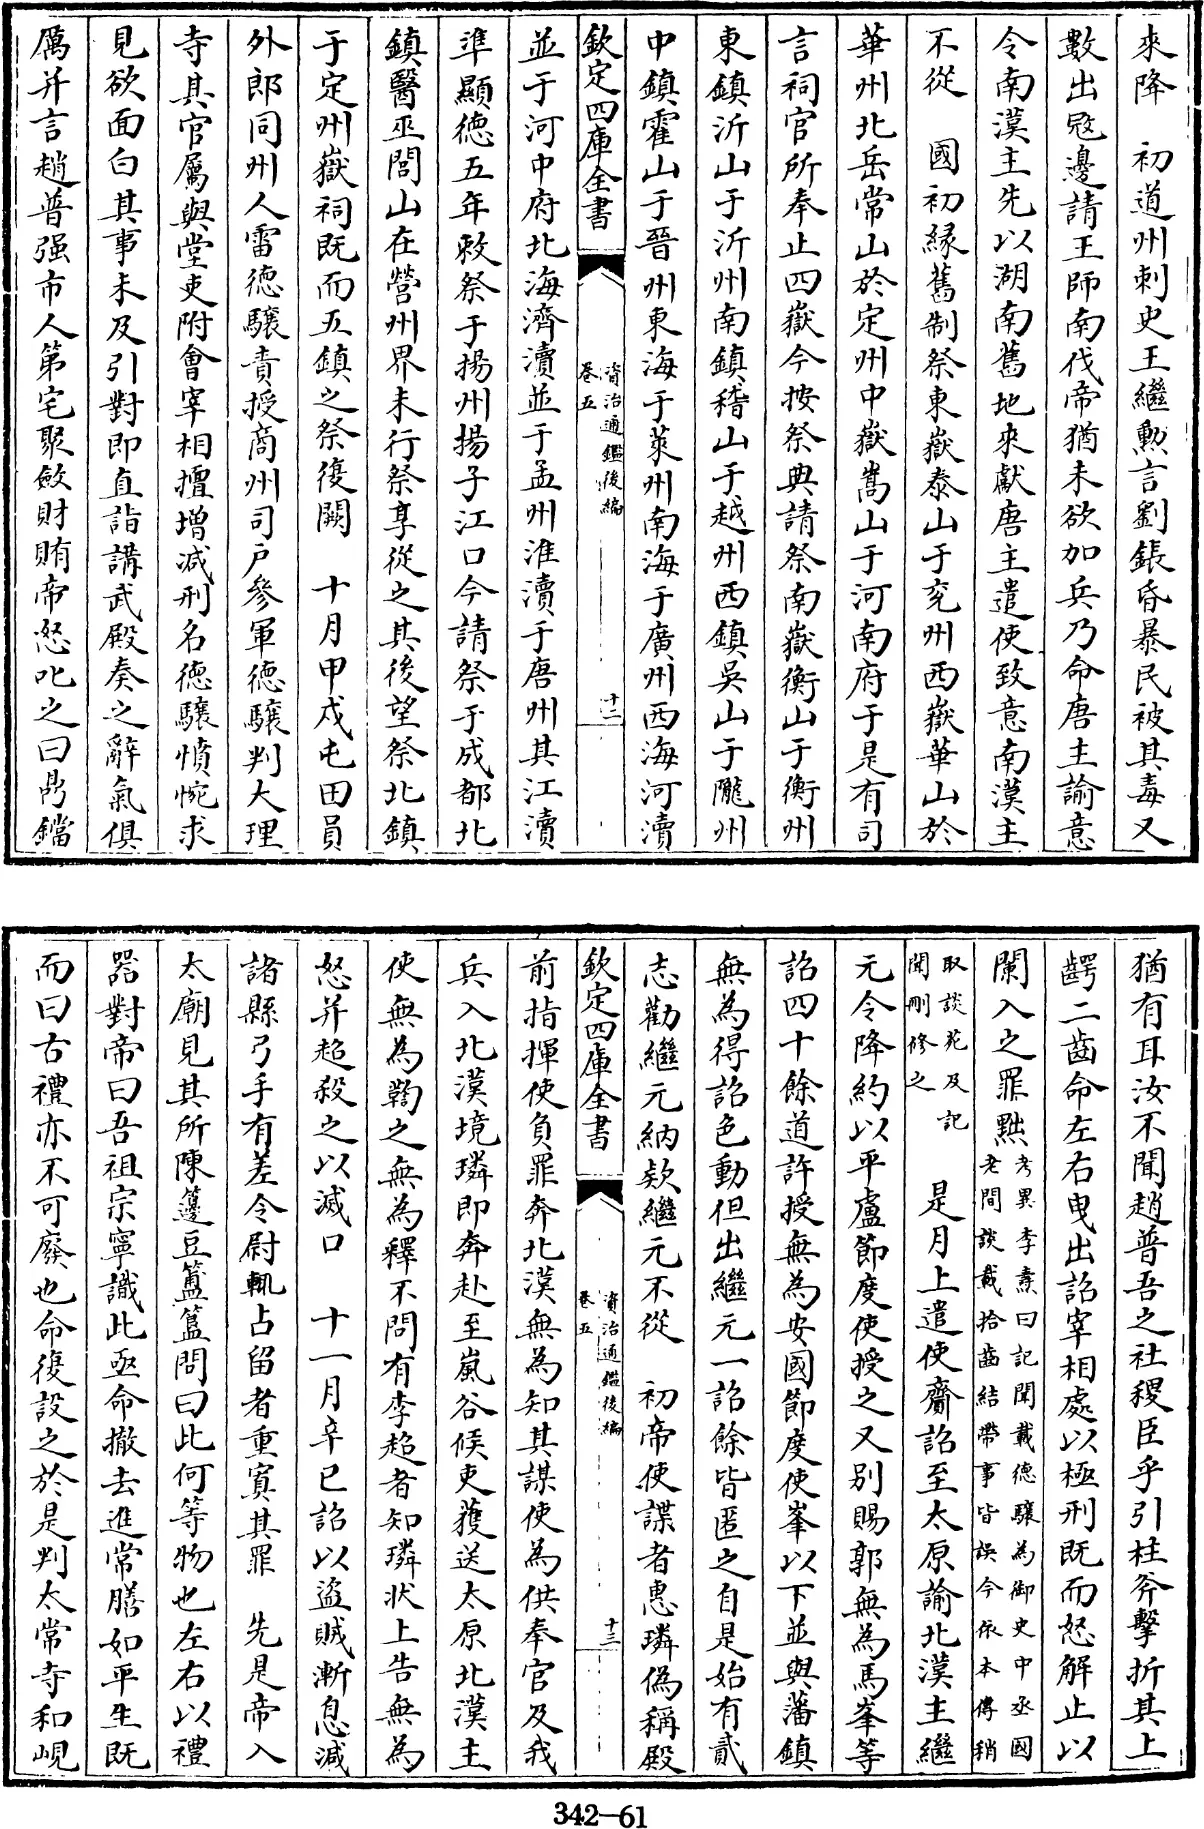 來降　初道州刺史王繼勲言劉鋹昏暴民被其毒又
數出㓂邊請王師南伐帝猶未欲加兵乃命唐主諭意
令南漢主先以湖南舊地來獻唐主遣使致意南漢主
不從　國初緣舊制祭東嶽泰山于兖州西嶽華山於
華州北岳常山於定州中嶽嵩山于河南府于是有司
言祠官所奉止四嶽今按祭典請祭南嶽衡山于衡州
東鎮沂山于沂州南鎮㑹稽山于越州西鎮吳山于隴州
中鎮霍山于晉州東海于萊州南海于廣州西海河瀆
欽定四庫全書
資治通鑑後編
卷五
十二
並于河中府北海濟瀆並于孟州淮瀆于唐州其江瀆
準顯德五年敕祭于揚州揚子江口今請祭于成都北
鎮醫巫閭山在營州界未行祭享從之其後望祭北鎮
于定州嶽祠既而五鎮之祭復闕　十月甲戌屯田員
外郎同州人雷德驤責授商州司户參軍德驤判大理
寺其官屬與堂吏附會宰相擅增減刑名德驤憤惋求
見欲面白其事未及引對即直詣講武殿奏之辭氣俱
厲并言趙普强市人第宅聚斂財賄帝怒叱之曰鼎鐺
猶有耳汝不聞趙普吾之社稷臣乎引柱斧擊折其上
齶二齒命左右曳出詔宰相處以極刑既而怒解止以
闌入之罪黜考異李燾曰記聞載德驤為御史中丞國
老閒談載拾齒結帶事皆誤今依本傳稍
取談苑及記
聞刪修之　是月上遣使齎詔至太原諭北漢主繼
元令降約以平盧節度使授之又别賜郭無為馬峯等
詔四十餘道許授無為安國節度使峯以下並與藩鎮
無為得詔色動但出繼元一詔餘皆匿之自是始有貳
志勸繼元納欵繼元不從　初帝使諜者惠璘偽稱殿
欽定四庫全書
資治通鑑後編
卷五
十三
前指揮使負罪奔北漢無為知其謀使為供奉官及我
兵入北漢境璘即奔赴至嵐谷候吏獲送太原北漢主
使無為鞫之無為釋不問有李超者知璘狀上告無為
怒并超殺之以滅口　十一月辛巳詔以盜賊漸息減
諸縣弓手有差令尉輒占留者重寘其罪　先是帝入
太廟見其所陳籩豆簠簋問曰此何等物也左右以禮
器對帝曰吾祖宗寧識此亟命撤去進常膳如平生既
而曰古禮亦不可廢也命復設之於是判太常寺和峴
342-61